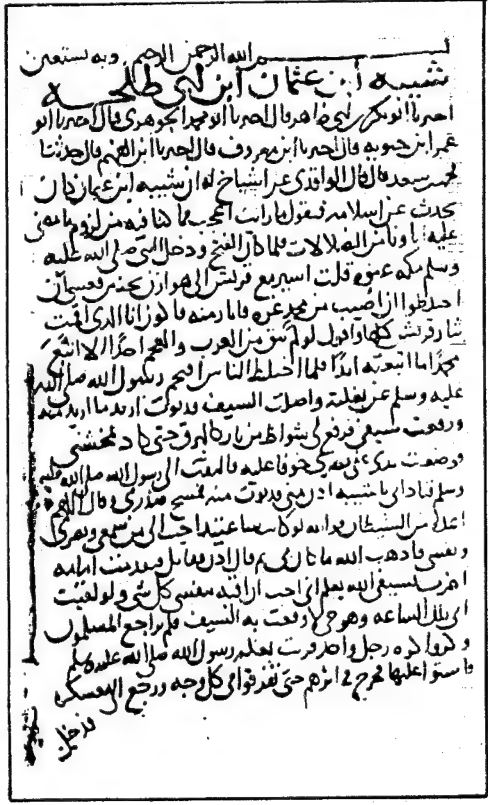 بسم الله الرحمن الرحيم وبه نستعين
شيبة ابن عثمان ابن ابي طلحه
اخبرنا ابو بكر بن ابي طاهر قال اخبرنا ابو محمد الجوهري قال اخبرنا ابو
عمر ابن حيويه قال اخبرنا ابن معروف قال اخبرنا ابن الفهم قال حدثنا
محمد بن سعد قال قال الواقدي عن اشياخ له ان شيبه ابن عثمان كان
يحدث عن اسلامه فيقول ما رايت اعجب مما كنا فيه من لزوم ما مضى
عليه اباونا من الضلالات فلما كان الفتح ودخل النبي صلى الله عليه
وسلم مكه عنوه قلت اسير مع قريش الى هوازن بحنين فعسى ان
اختلطوا ان اصيب من محمد غره فاثار منه فاكون انا الذي اقمت
ثار قريش كلها واقول لو لم يبق من العرب والعجم احدا الا اتبع
محمدا ما اتبعته ابدا فلما اختلط الناس اقتحم رسول الله صلى الله
عليه وسلم عن بغلته واصلت السيف فدنوت اريد ما اريد منه
ورفعت سيفي فرفع لي شواظ من نار كالبرق حتى كاد يمحشني
فوضعت يدي على بصري خوفا عليه فالتفت الي رسول الله صلى الله عليه
وسلم فنادى يا شيبه ادن مني فدنوت منه فمسح صدري وقال اللهم
اعذه من الشيطان فوالله لهو كان ساعتيذ احب الي من سمعي وبصري
ونفسي فاذهب الله ما كان بي ثم قال ادن فقاتل فتقدمت امامه
اضرب بسيفي الله يعلم اني احب ان اقيه بنفسي كل شي ولو لقيت
ابي تلك الساعه وهو حي لاوقعت به السيف فلم تراجع المسلمون
وكروا كره رجل واحد قربت بغله رسول الله صلى الله عليه وسلم
فاستوا عليها فخرج في اثرهم حتى تفرقوا في كل وجه ورجع الى معسكره
فدخل